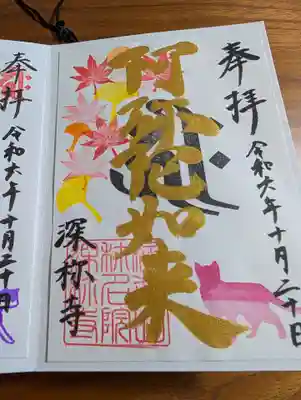 奉拝
令和六年十月二十日
阿弥陀如来
深称寺
奉拝
令和六年十月二十日